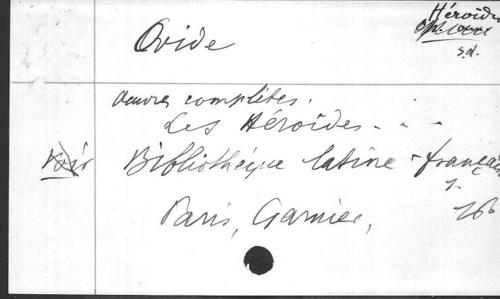 Ovide
Héroïdes
s.d.
Œuvres complètes.
Les Héroïdes - . .
Voir Bibliothèque latine-français
Paris, Garnier,